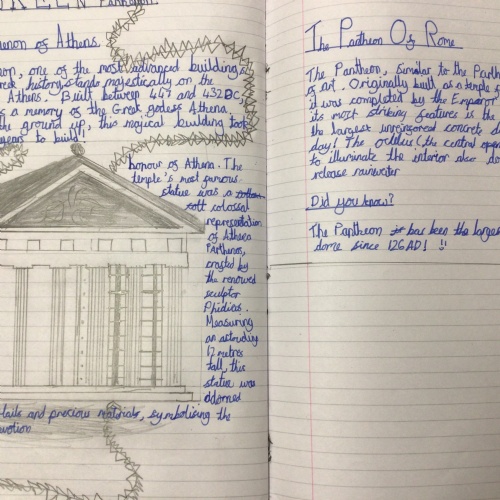 GREEN Parthenon
enon of Athens.
eon, one of the most advanced buildings
reek history, stands majestically on the
Athens. Built between 447 and 432 BC
s a memory of the Greek godess Athena.
the ground up, this magical building took
years to build!
honour of Athena. The
temple's most famous
statue was a
soft colossal
representation
of Athena
Parthenos,
crafted by
the renowed
sculptor
Phidias.
Measuring
an astounding
12 metres
tall, this
statue was
adorned
tails and precious materials, symbolising the
evotion
The Pantheon Of Rome
The Pantheon, similar to the Parth
of art. Originally built as a temple
it was completed by the Emperor
its most striking features is the
the largest unreinforced concrete d
day! The oculus (the central open
to illuminate the interior also do
release rainwater
Did you know?
The Pantheon has been the larges
dome since 126AD! !!